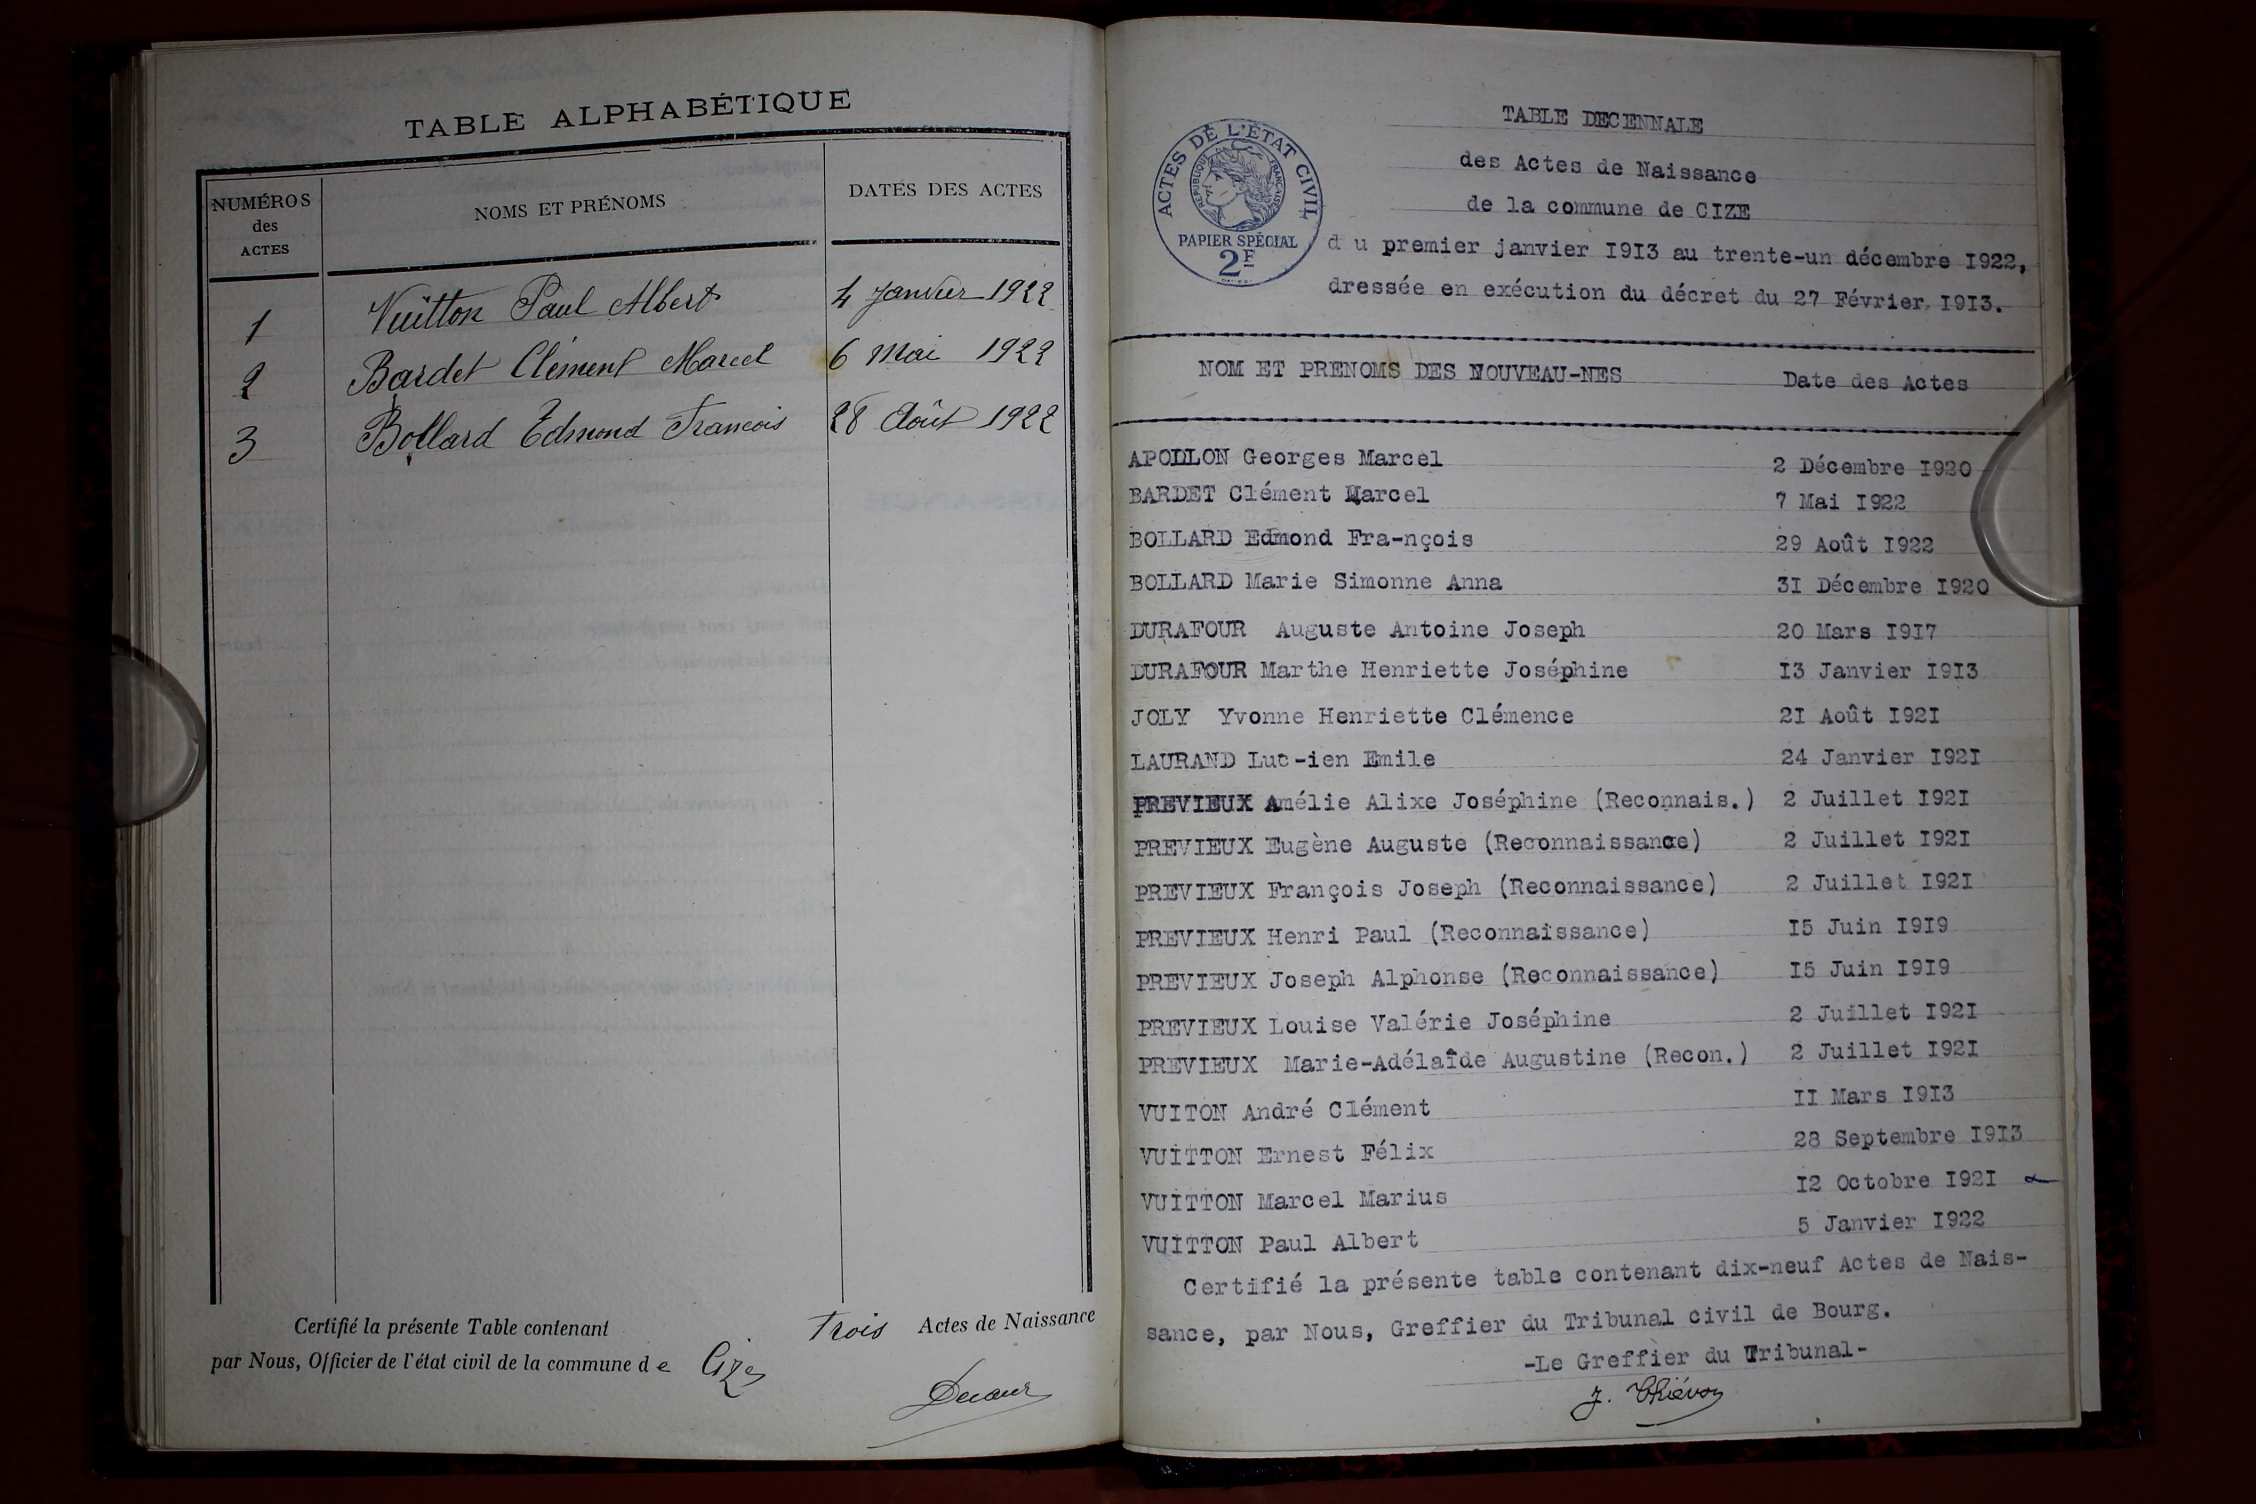 TABLE ALPHABÉTIQUE
NUMÉROS
des
ACTES
NOMS ET PRÉNOMS
DATES DES ACTES
1 Vuitton Paul Albert 4 Janvier 1922
2 Bardet Clément Marcel 6 Mai 1922
3 Bollard Edmond Francois 28 Août 1922
Certifié la présente Table contenant trois Actes de Naissance
par Nous, Officier de l'état civil de la commune de Cize
ACTES DE L'ÉTAT CIVIL
RÉPUBLIQUE FRANÇAISE
PAPIER SPÉCIAL
2F
TABLE DECENNALE
des Actes de Naissance
de la commune de CIZE
du premier janvier I9I3 au trente-un décembre I922,
dressée en exécution du décret du 27 Février I9I3.
NOM ET PRENOMS DES NOUVEAU-NES Date des Actes
APOLLON Georges Marcel 2 Décembre I920
BARDET Clément Marcel 7 Mai I922
BOLLARD Edmond Fra-nçois 29 Août I922
BOLLARD Marie Simonne Anna 3I Décembre I920
DURAFOUR Auguste Antoine Joseph 20 Mars I9I7
DURAFOUR Marthe Henriette Joséphine I3 Janvier I9I3
JOLY Yvonne Henriette Clémence 2I Août I92I
LAURAND Luc-ien Emile 24 Janvier I92I
PREVIEUX Amélie Alixe Joséphine (Reconnais.) 2 Juillet I92I
PREVIEUX Eugène Auguste (Reconnaissance) 2 Juillet I92I
PREVIEUX François Joseph (Reconnaissance) 2 Juillet I92I
PREVIEUX Henri Paul (Reconnaissance) I5 Juin I9I9
PREVIEUX Joseph Alphonse (Reconnaissance) I5 Juin I9I9
PREVIEUX Louise Valérie Joséphine 2 Juillet I92I
PREVIEUX Marie-Adélaïde Augustine (Recon.) 2 Juillet I92I
VUITON André Clément II Mars I9I3
VUITTON Ernest Félix 28 Septembre I9I3
VUITTON Marcel Marius I2 Octobre I92I
VUITTON Paul Albert 5 Janvier I922
Certifié la présente table contenant dix-neuf Actes de Nais-
sance, par Nous, Greffier du Tribunal civil de Bourg.
-Le Greffier du Tribunal-